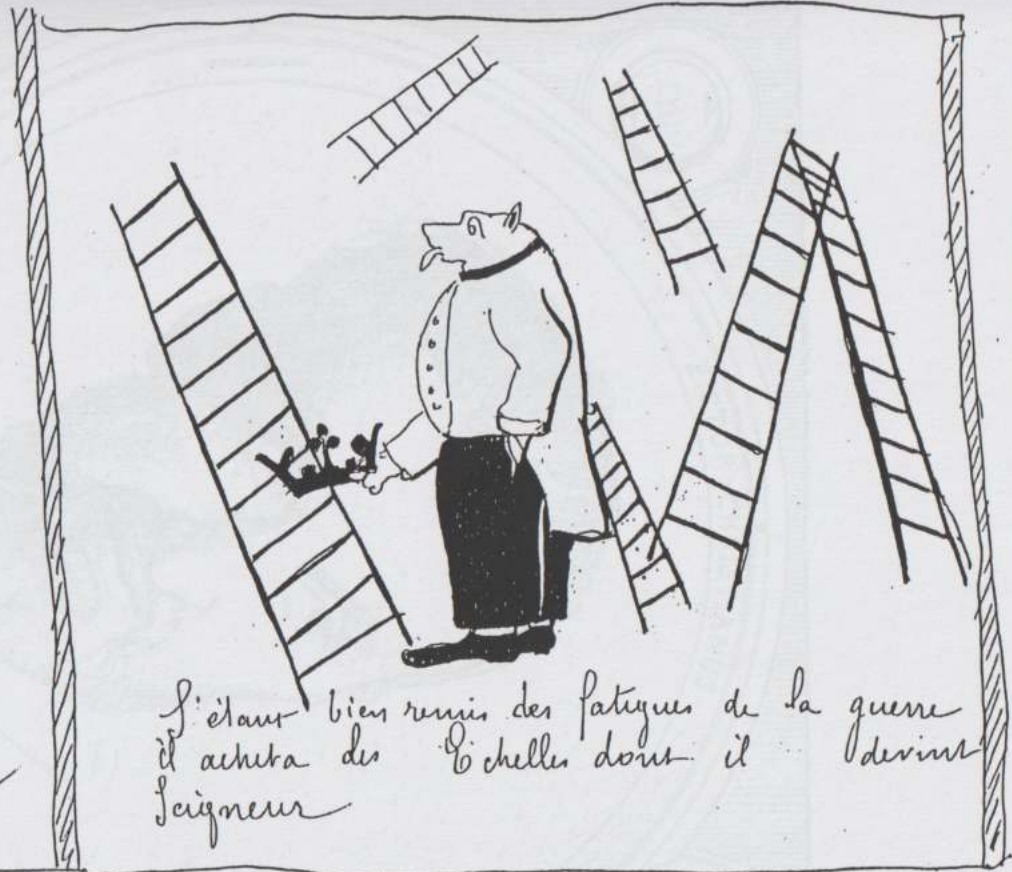 S'étant bien remis des fatigues de la guerre
il acheta des Echelles dont il devint
Seigneur